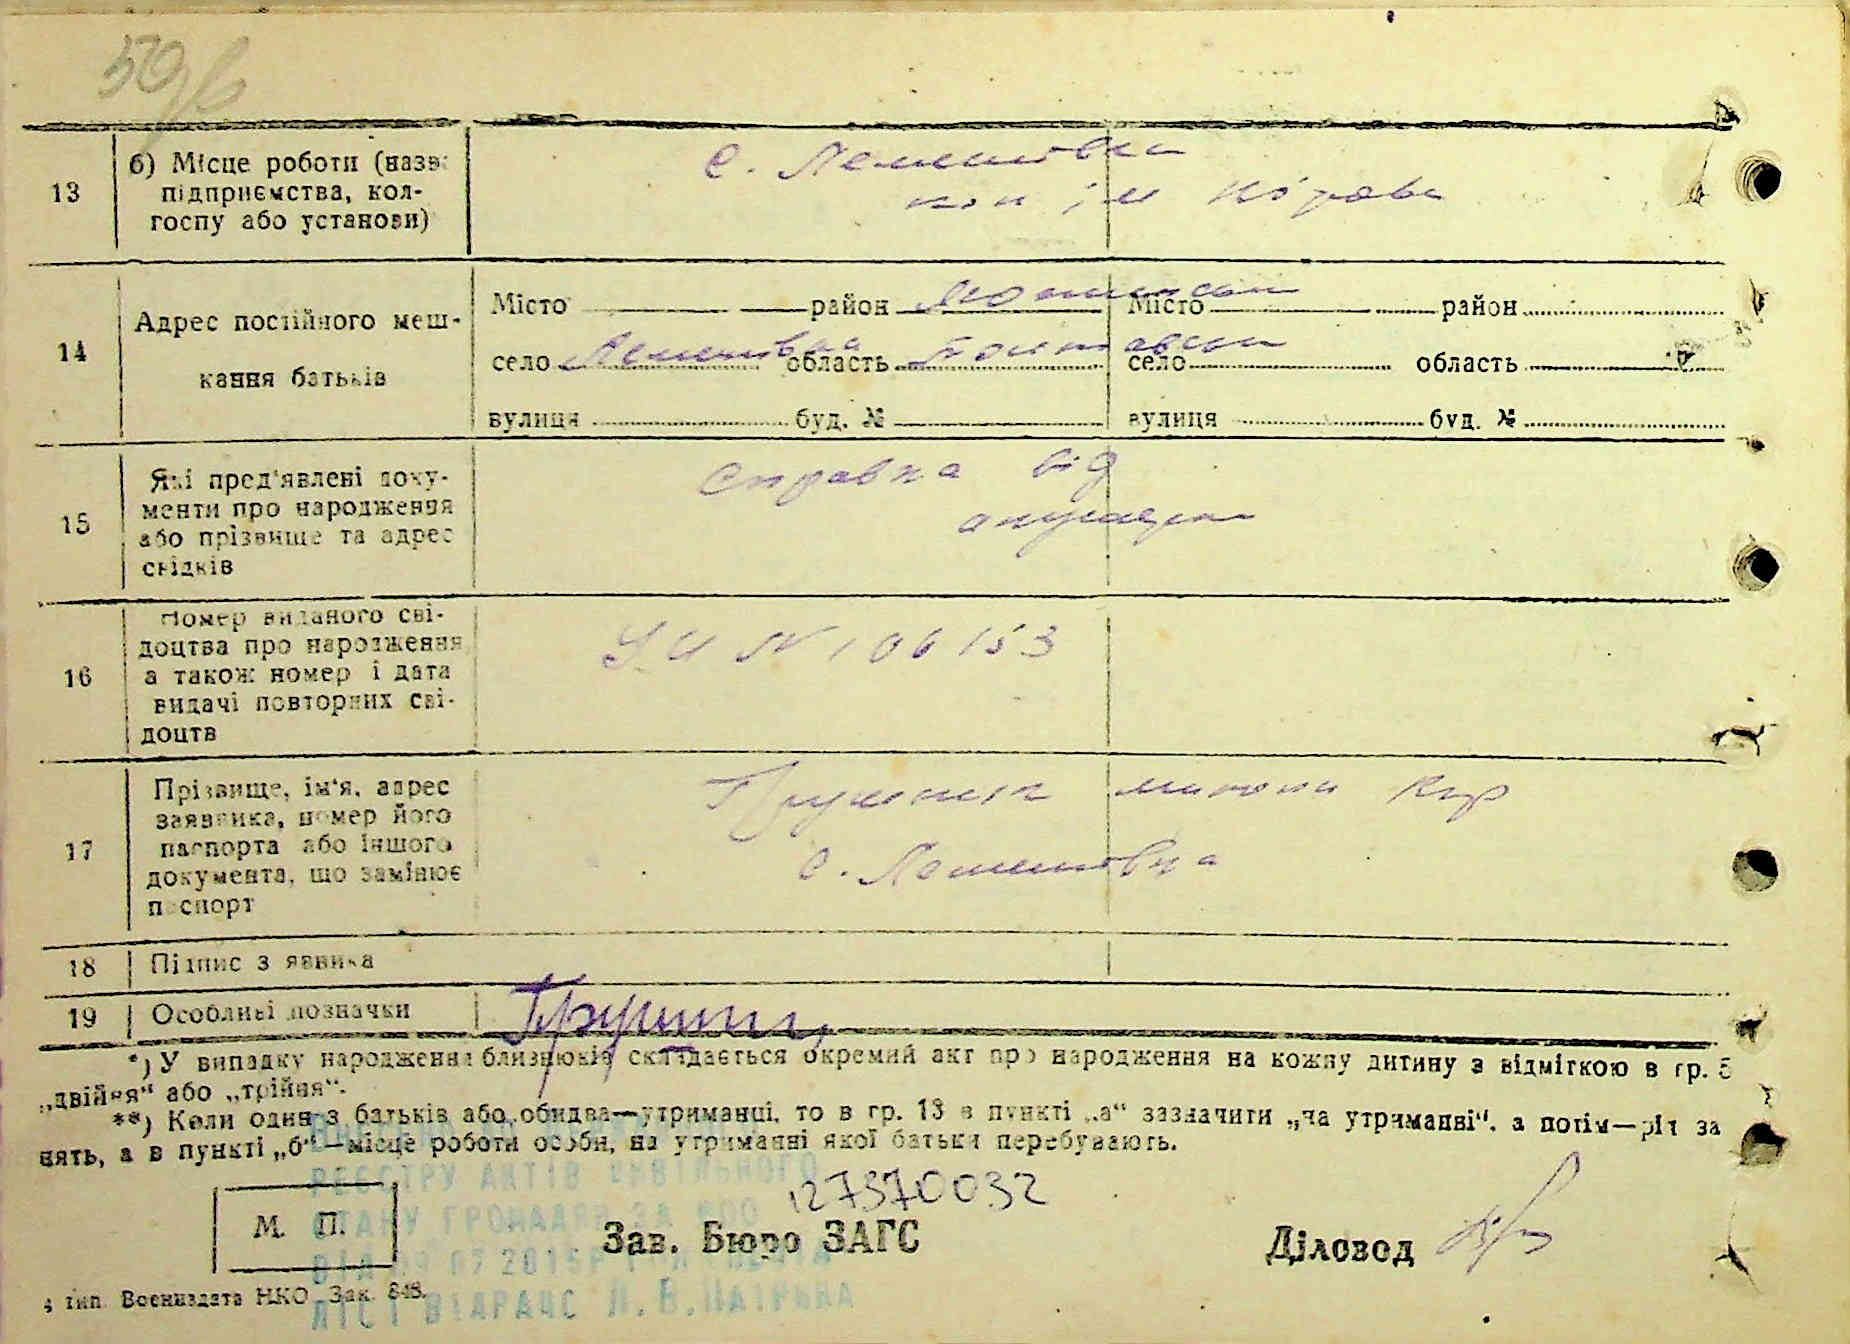 13
б) Місце роботи (назва
підприємства, кол-
госпу або установи)
с. Лемешовка
кол ім Кірова
14
Адрес постійного меш-
кання батьків
Місто район Місто район
село Лемешовка область село область
вулиця буд. № вулиця буд. №
15
Які пред'явлені доку-
менти про народження
або прізвище та адрес
свідків
Справка від
акушерки
16
Номер виданого сві-
доцтва про народження
а також номер і дата
видачі повторних сві-
доцтв
N 106153
17
Прізвище, ім'я, адрес
заявника, номер його
паспорта або іншого
документа, що замінює
паспорт
с. Лемешовка
18 Підпис заявника
19 Особливі позначки
*) У випадку народження близнюків складається окремий акт про народження на кожну дитину з відміткою в гр. 5
„двійня“ або „трійня“.
**) Коли один з батьків або обидва—утриманці, то в гр. 13 в пункті „а“ зазначити „на утриманні“, а потім—рід за
нять, а в пункті „б“—місце роботи особи, на утриманні якої батьки перебувають.
РЕЄСТРУ АКТІВ ЦИВІЛЬНОГО
СТАНУ ГРОМАДЯН ЗА
127370032
М. П.
Зав. Бюро ЗАГС
Діловод
4 тип. Воениздата НКО Зак. 848.